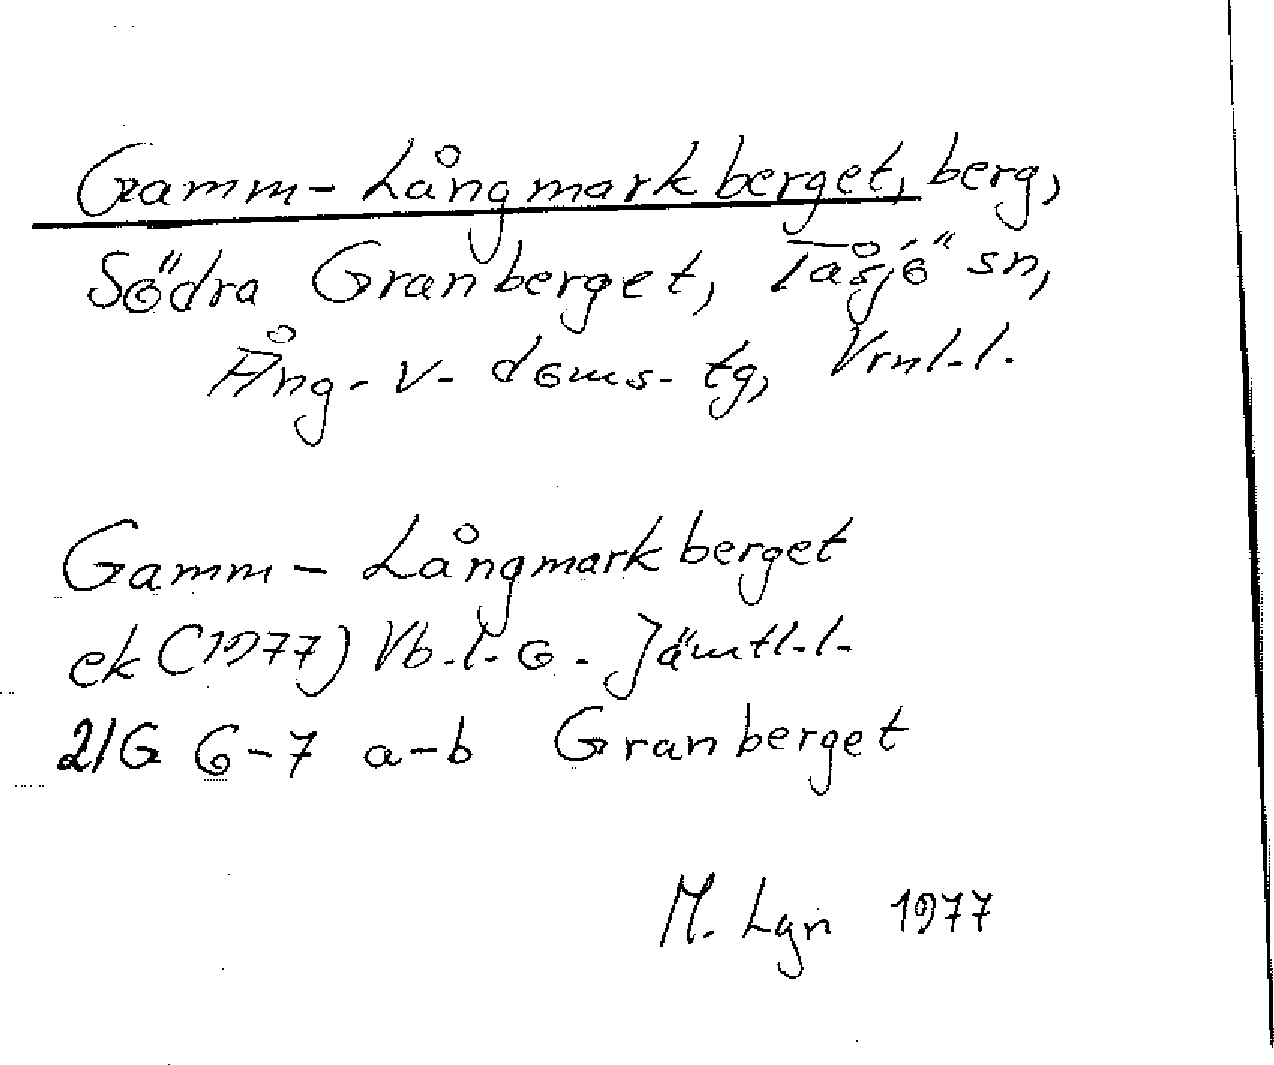 Gamm-Långmarkberget, berg,
Södra Granberget, Tåsjö sn,
Ång. v. doms. tg, Vrnl.l.
Gamm-Långmarkberget
ek (1977) Vb.l. o. Jämtl.l.
21G 6-7 a-b Granberget
M. Lgn 1977